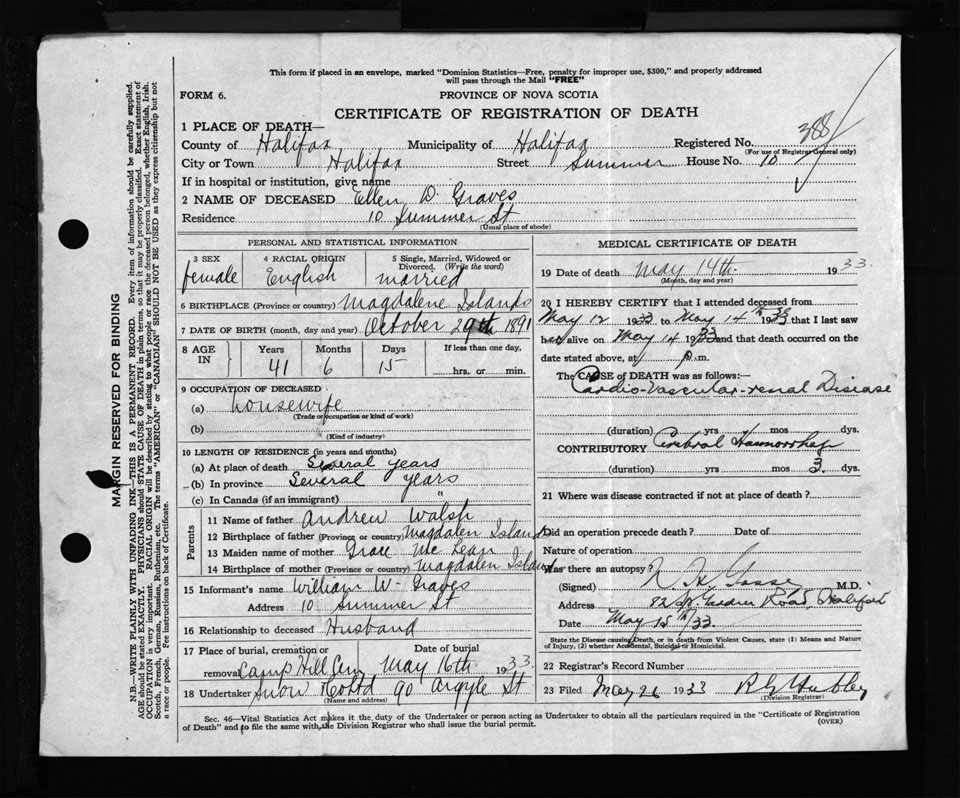 This form if placed in an envelope, marked “Dominion Statistics—Free, penalty for improper use, $300,” and properly addressed
will pass through the Mail “FREE”
FORM 6.
PROVINCE OF NOVA SCOTIA
CERTIFICATE OF REGISTRATION OF DEATH
1 PLACE OF DEATH—
388
County of Halifax Municipality of Halifax Registered No.
(For use of Registrar General only)
City or Town Halifax Street Summer House No. 10
If in hospital or institution, give name
2 NAME OF DECEASED Ellen D. Graves
Residence 10 Summer St
(Usual place of abode)
PERSONAL AND STATISTICAL INFORMATION
3 SEX 4 RACIAL ORIGIN 5 Single, Married, Widowed or Divorced. (Write the word)
female English married
6 BIRTHPLACE (Province or country) Magdalene Islands
7 DATE OF BIRTH (month, day and year) October 29th 1891
8 AGE IN Years Months Days If less than one day,
41 6 15 hrs. or min.
9 OCCUPATION OF DECEASED
(a) housewife
(Trade or occupation or kind of work)
(b)
(Kind of industry)
10 LENGTH OF RESIDENCE (in years and months)
(a) At place of death Several years
(b) In province Several years
(c) In Canada (if an immigrant) "
Parents
11 Name of father Andrew Walsh
12 Birthplace of father (Province or country) Magdalen Island
13 Maiden name of mother Grace Mc Lean
14 Birthplace of mother (Province or country) Magdalen Island
15 Informant's name William W- Graves
Address 10 Summer St
16 Relationship to deceased Husband
17 Place of burial, cremation or Date of burial
removal Camp Hill Cem May 16th 1933.
18 Undertaker Snow 90 Argyle St
(Name and address)
MEDICAL CERTIFICATE OF DEATH
19 Date of death May 14th 1933.
(Month, day and year)
20 I HEREBY CERTIFY that I attended deceased from
May 12 1933 to May 14th 1933 that I last saw
her alive on May 14 1933 and that death occurred on
date stated above, at p.m.
The CAUSE of DEATH was as follows:
Cardio-Vascular-renal Disease
(duration) yrs mos dys.
CONTRIBUTORY Cerebral Haemorrhage
(duration) yrs mos 3. dys.
21 Where was disease contracted if not at place of death?
Did an operation precede death? Date of
Nature of operation
Was there an autopsy?
(Signed) Gosse M.D.
Address Road, Halifax
Date May 15th/33.
State the Disease causing Death, or in death from Violent Causes, state (1) Means and Nature
of Injury, (2) whether Accidental, Suicidal or Homicidal.
22 Registrar's Record Number
23 Filed May 26 1933 Hubley
(Division Registrar)
Sec. 46—Vital Statistics Act makes it the duty of the Undertaker or person acting as Undertaker to obtain all the particulars required in the “Certificate of Registration
of Death” and to file the same with the Division Registrar who shall issue the burial permit. (OVER)
MARGIN RESERVED FOR BINDING
N.B.—WRITE PLAINLY WITH UNFADING INK—THIS IS A PERMANENT RECORD. Every item of information should be carefully supplied.
AGE should be stated EXACTLY. PHYSICIANS should STATE CAUSE OF DEATH in plain terms, so that it may be properly classified. Exact statement of
OCCUPATION is very important. RACIAL ORIGIN will be described by stating to what people or race the deceased person belonged, whether English, Irish,
Scotch, French, German, Russian, Ruthenian, etc. The terms “AMERICAN” or “CANADIAN” SHOULD NOT BE USED as they express citizenship but not
a race or people. See instructions on back of Certificate.